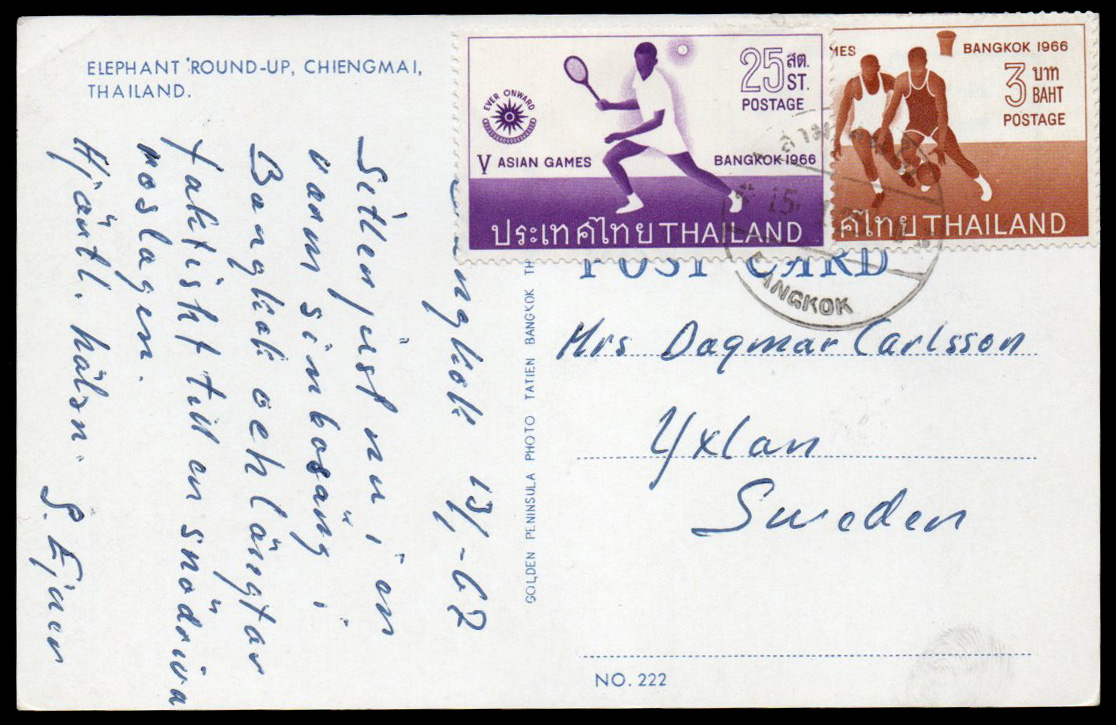 ELEPHANT ROUND-UP, CHIENGMAI,
THAILAND.
EVER ONWARD
25 สต.
ST.
POSTAGE
V ASIAN GAMES BANGKOK 1966
ประเทศไทย THAILAND
MES BANGKOK 1966
3 บาท
BAHT
POSTAGE
ศไทย THAILAND
15
BANGKOK
POST CARD
Mrs Dagmar Carlsson
Yxlan
Sweden
ngkok 13/1-67
Sitter just nu i en
varm simbasäng i
Bangkok och längtar
faktiskt till en snödriva
roslagen.
Hjärtl. hälsn.
GOLDEN PENINSULA PHOTO TATIEN BANGKOK TH
NO. 222